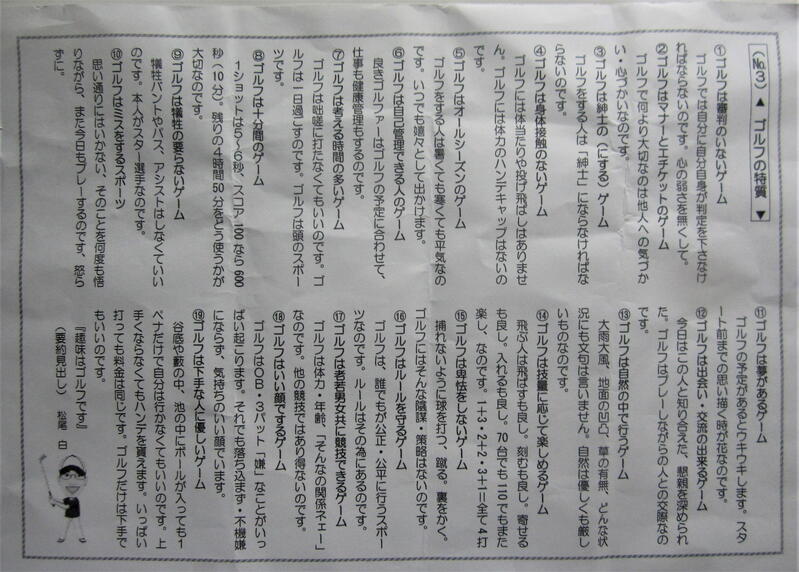 （№3） ▲ ゴルフの特質 ▼
①ゴルフは審判のいないゲーム
ゴルフでは自分に自分自身が判定を下さなけ
ればならないのです。心の弱さを無くして。
②ゴルフはマナーとエチケットのゲーム
ゴルフで何より大切なのは他人への気づか
い・心づかいなのです。
③ゴルフは紳士の（にする）ゲーム
ゴルフをする人は「紳士」にならなければな
らないのです。
④ゴルフは身体接触のないゲーム
ゴルフには体当たりや投げ飛ばしはありませ
ん。ゴルフには体力のハンデキャップはないの
です。
⑤ゴルフはオールシーズンのゲーム
ゴルフをする人は暑くても寒くても平気なの
です。いつでも嬉々として出かけます。
⑥ゴルフは自己管理できる人のゲーム
良きゴルファーはゴルフの予定に合わせて、
仕事も健康管理もするのです。
⑦ゴルフは考える時間の多いゲーム
ゴルフは咄嗟に打たなくてもいいのです。ゴ
ルフは一日過ごすのです。ゴルフは頭のスポー
ツです。
⑧ゴルフは十分間のゲーム
1ショットは5～6秒、スコア100なら600
秒（10分）。残りの4時間50分をどう使うかが
大切なのです。
⑨ゴルフは犠牲の要らないゲーム
犠牲バントやパス、アシストはしなくていい
のです。本人がスター選手なのです。
⑩ゴルフはミスをするスポーツ
思い通りにはいかない、そのことを何度も悟
りながら、また今日もプレーするのです、怒ら
ずに。
⑪ゴルフは夢があるゲーム
ゴルフの予定があるとウキウキします。スタ
ート前までの思い描く時が花なのです。
⑫ゴルフは出会い・交流の出来るゲーム
今日はこの人と知り合えた、懇親を深められ
た。ゴルフはプレーしながらの人との交際なの
です。
⑬ゴルフは自然の中で行うゲーム
大雨大風、地面の凹凸、草の有無、どんな状
況にも文句は言いません。自然は優しくも厳し
いものなのです。
⑭ゴルフは技量に応じて楽しめるゲーム
飛ぶ人は飛ばすも良し。刻むも良し。寄せる
も良し。入れるも良し。70台でも110でもまた
楽し、なのです。1+3・2+2・3+1=全て4打
⑮ゴルフは卑怯をしないゲーム
捕れないように球を打つ、蹴る。裏をかく。
ゴルフにはそんな陰謀・策略はないのです。
⑯ゴルフはルールを守るゲーム
ゴルフは、誰でもが公正・公平に行うスポー
ツなのです。ルールはその為にあるのです。
⑰ゴルフは老若男女共に競技できるゲーム
ゴルフは体力・年齢、「そんなの関係ネェー」
なのです。他の競技ではあり得ないのです。
⑱ゴルフはいい顔するゲーム
ゴルフはOB・3パット「嫌」なことがいっ
ぱい起こります。それでも落ち込まず・不機嫌
にならず、気持ちのいい顔でいます。
⑲ゴルフは下手な人に優しいゲーム
谷底や藪の中、池の中にボールが入っても1
ペナだけで自分は行かなくてもいいのです。上
手くならなくてもハンデを貰えます。いっぱい
打っても料金は同じです。ゴルフだけは下手で
もいいのです。
『趣味はゴルフです』
（要約見出し） 松尾 白